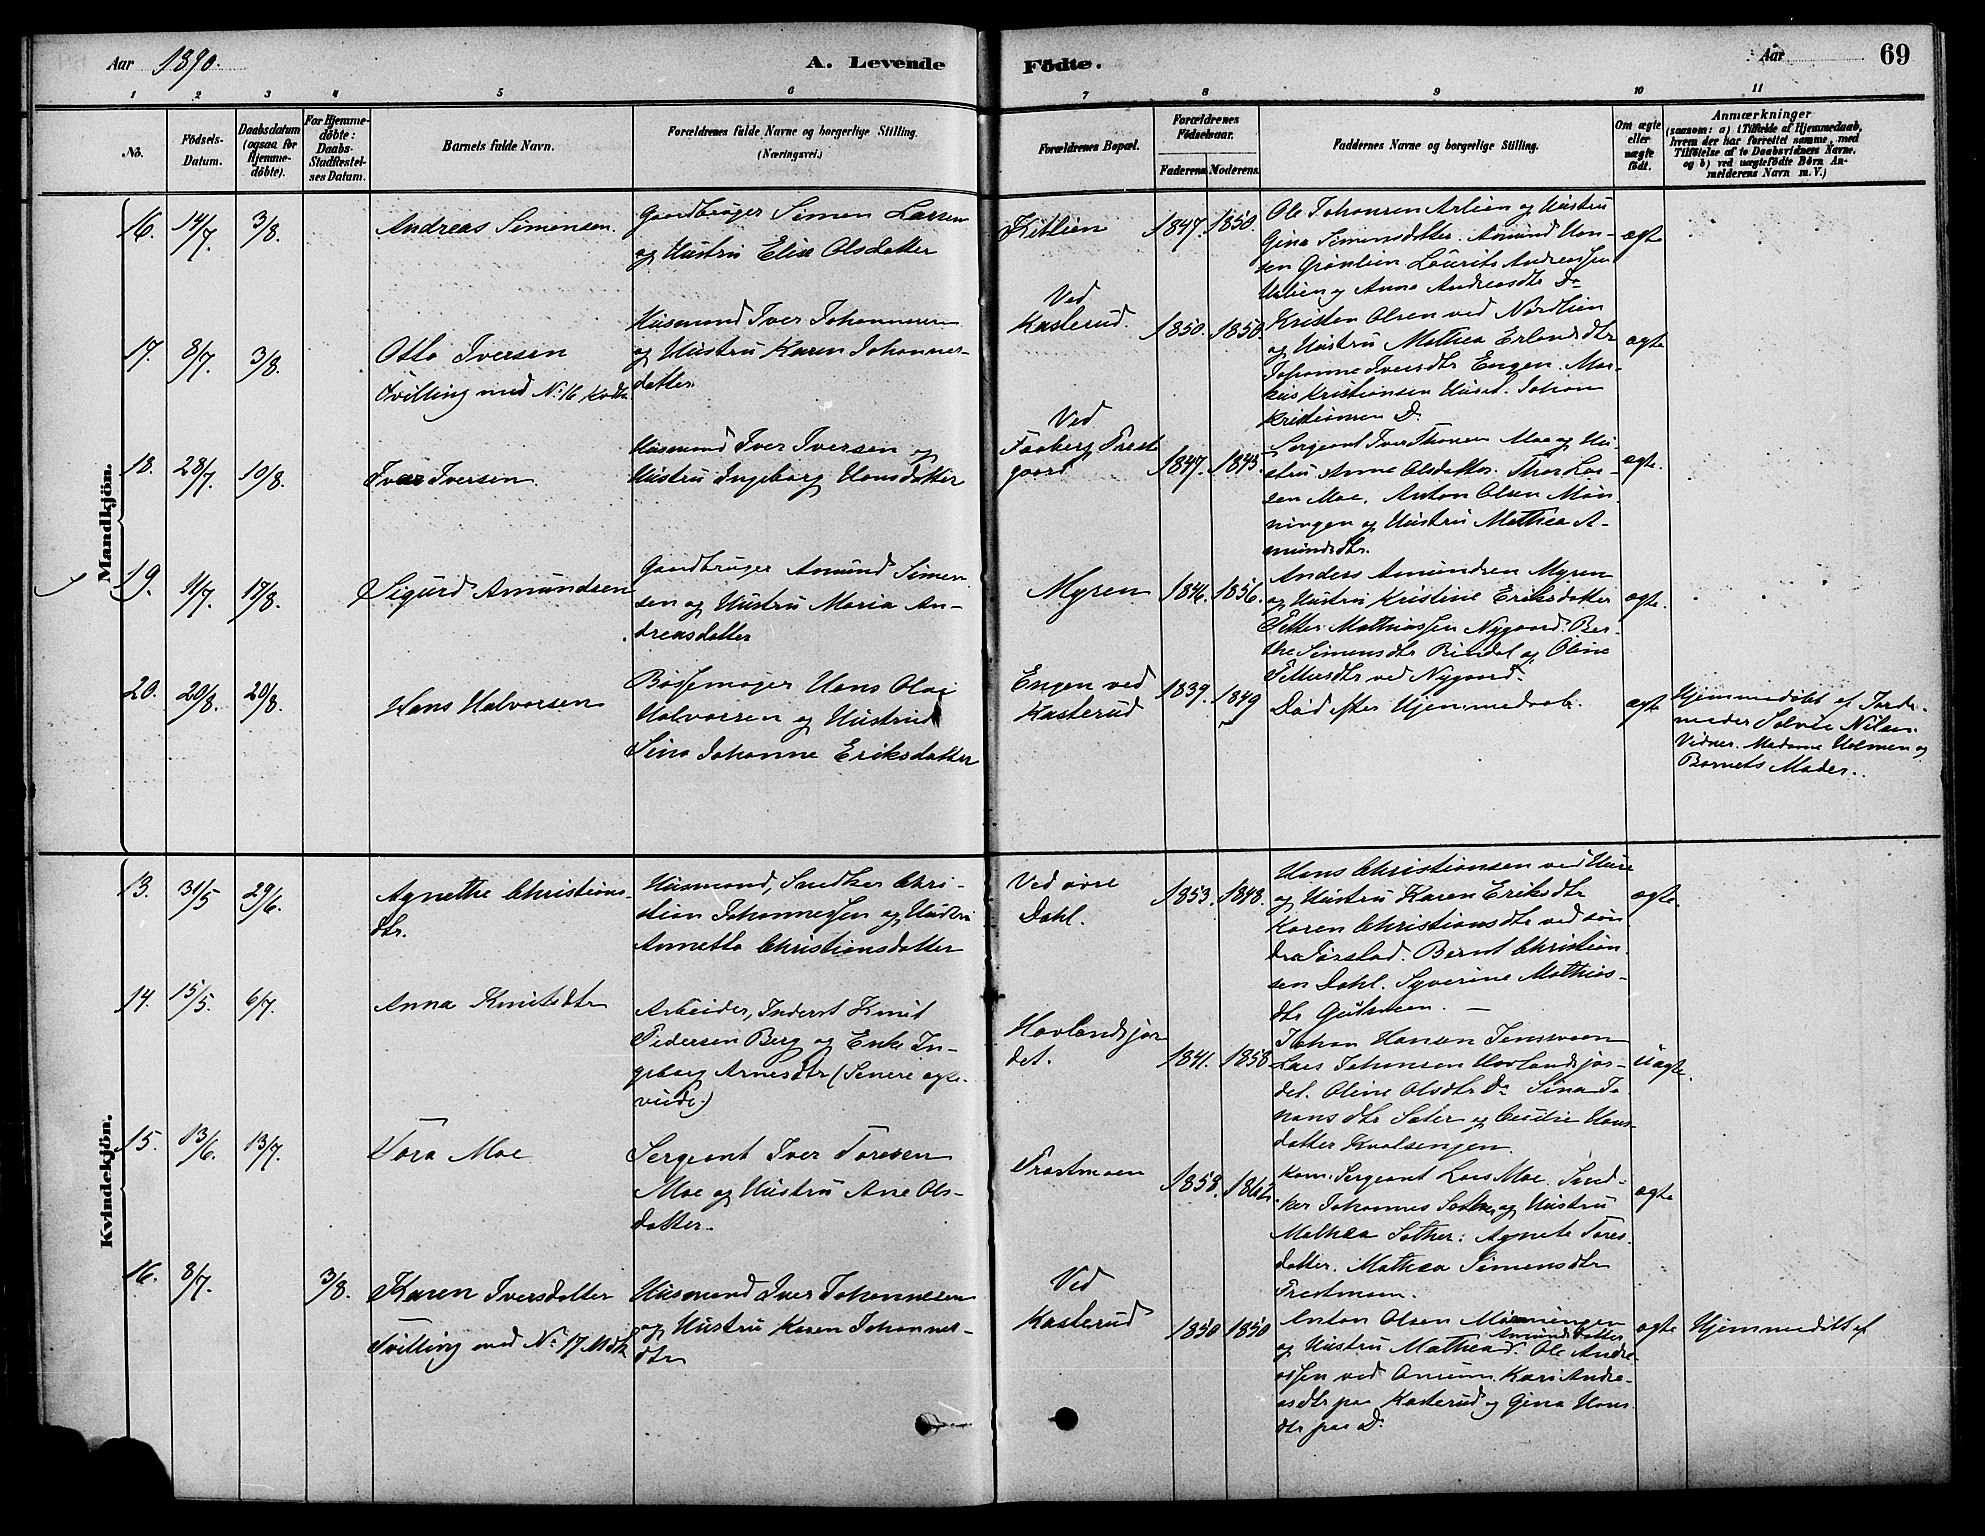 Aar 1890.
A. Levende Födte.
Aar
69
1 2 3 4 5 6 7 8 9 10 11
No.
Födsels-Datum.
Daabsdatum (ogsaa for Hjemme-döbte).
For Hjemme-döbte: Daabs-Stadfæstel-ses Datum.
Barnets fulde Navn.
Forældrenes fulde Navne og borgerlige Stilling. (Næringsvei.)
Forældrenes Bopæl.
Forældrenes Födselsaar.
Faderens.
Moderens.
Faddernes Navne og borgerlige Stilling.
Om ægte eller uægte födt.
Anmærkninger
(saasom: a) i Tilfælde af Hjemmedaab,
hvem der har forrettet samme, med
Tilföielse af to Daabsvidners Navne.
og b) ved uægtefödte Börn An-
melderens Navn m. V.)
Mandkjön.
16. 14/7 3/8.
Andreas Simensen.
Gaardbruger Simen Larsen
og Hustru Elise Olsdatter
Kitlien
1847. 1850.
Ole Johansen Arlien og Hustru
Gina Simensdatter. Amund Han-
sen Grønlien Laurits Andreassen
og Anna Andreasdtr Do
ægte
17. 8/7. 3/8.
Otto Iversen
Tvilling med No 16 Kvdk
Husmand Iver Johannesen
og Hustru Karen Johannes-
datter.
Ved
Kasterud.
1850. 1850.
Kristen Olsen ved Nordlien
og Hustru Mathea Erlandsdtr
Johanne Iversdtr Engen. Mar-
kus Kristiansen Huset. Johan
Kristiansen Do
ægte
18. 28/7. 10/8.
Ivar Iversen
Husmand Iver Iversen og
Hustru Ingeborg Hansdatter
Ved
Faaberg Prest
gaard
1847. 1843.
Sergeant Iver Thoresen Moe og Hu-
stru Anne Olsdatter. Thor Lar-
sen Moe. Anton Olsen Møn-
ningen og Hustru Mathea A-
mundsdtr.
ægte.
19. 11/7. 17/8.
Sigurd Amundsen
Gaardbruger Amund Simen
sen og Hustru Maria An-
dreasdatter
Myren
1846. 1856.
Anders Amundsen Myren
og Hustru Kristine Eriksdatter
Petter Mathiassen Nygaard. Ber-
the Simensdtr Rindal og Oline
Pettersdtr ved Nygaard.
ægte.
20. 20/8. 20/8.
Hans Halvorsen
Bøssemager Hans Olai
Halvorsen og Hustru
Sina Johanne Eriksdatter
Engen ved
Kasterud
1839. 1849
Død efter Hjemmedaab.
ægte
Hjemmedøbt af Jorde-
moder Solvie Nilsen.
Vidner. Madame Holmen og
Barnets Moder.
Kvindekjön.
13. 31/5 29/6.
Agnethe Christians-
dtr.
Husmand, Snedker Chri-
stian Johannessen og Hustru
Annette Christiansdatter
Ved øvre
Dahl.
1853. 1848.
Hans Christiansen ved
og Hustru Karen Eriksdtr
Karen Christiansdtr ved søn
dre Jørstad. Bernt Christian-
sen Dahl. Syverine Mathias-
dtr
ægte.
14. 15/5. 6/7.
Anna Knutsdtr
Arbeider, Inderst Knut
Pedersen Berg og Enke In-
geborg Arnesdtr (Senere ægte-
viede.)
Hovlandsjor-
det.
1841. 1858
Johan Hansen Jensmoen
Lars Johansen Hovlandsjor-
det. Oline Olsdtr Do Sina Jo-
hansdtr Sæter og Cecilie Hans-
datter Kvalsengen
Uægte.
15. 13/6. 13/7.
Tora Moe
Sergeant Iver Toresen
Moe og Hustru Ane Ols-
datter.
Trostmoen
1858. 1862.
Kom. Sergeant Lars Moe. Sned-
ker Johannes Sother og Hustru
Mathea Sother: Agnete Tores-
datter. Mathea Simensdtr
Trostmoen.
ægte
16. 8/7. 3/8.
Karen Iversdatter
Tvilling med No 17 Mdk
Husmand Iver Johannesen
og Hustru Karen Johannes-
dtr
Ved
Kasterud
1850 1850
Anton Olsen Mønningen
og Hustru Mathea Amundsdatter. Ole Andre-
assen ved Onsum. Kari Andre-
asdtr paa Kasterud og Gina Hans
dtr paa Do
ægte
Hjemmedøbt af